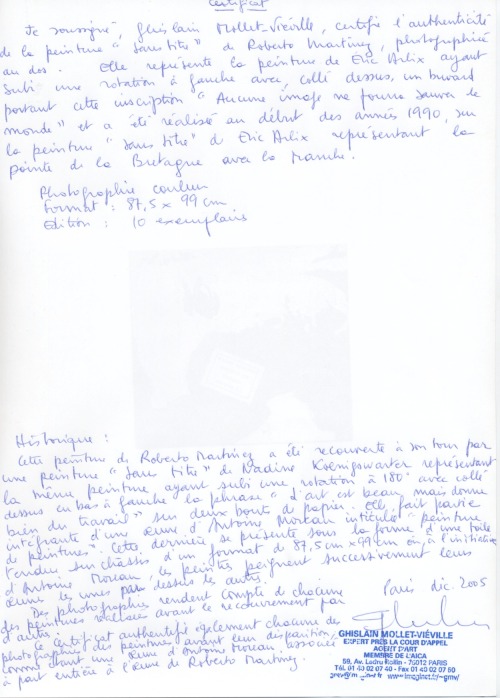 Certificat
Je soussigné, Ghislain Mollet-Viéville, certifie l'authenticité
de la peinture "sans titre" de Roberto Martinez, photographiée
au dos. Elle représente la peinture de Eric Arlix ayant
subi une rotation à gauche avec, collé dessus, un buvard
portant cette inscription "Aucune image ne pourra sauver le
monde" et a été réalisé au début des années 1990, sur
la peinture "sans titre" d'Eric Arlix représentant la
pointe de la Bretagne avec la Manche.
Photographie couleur
Format : 87,5 x 99 cm
Edition : 10 exemplaires
Historique :
Cette peinture de Roberto Martinez a été recouverte à son tour par
une peinture "sans titre" de Nadine Koenigswarter représentant
la même peinture ayant subi une rotation à 180° avec collé
dessus en bas à gauche la phrase "l'art est beau mais donne
bien du travail" sur deux bouts de papier. Elle fait partie
intégrante d'une œuvre d'Antoine Moreau intitulée "peinture
de peintures". Cette dernière se présente sous la forme d'une toile
tendue sur châssis d'un format de 87,5 cm x 99 cm où, à l'initiative
d'Antoine Moreau, les peintres peignent successivement leurs
œuvres les unes par dessus les autres.
Des photographies rendent compte de chacune
des peintures réalisées avant le recouvrement par
d'autres.
Ce certificat authentifie également chacune des
photographies des peintures avant leur disparition,
comme étant une œuvre d'Antoine Moreau, associée
à part entière à l'œuvre de Roberto Martinez.
Paris dic. 2005
GHISLAIN MOLLET-VIÉVILLE
EXPERT PRÈS LA COUR D'APPEL
AGENT D'ART
MEMBRE DE L'AICA
59, Av. Ledru Rollin - 75012 PARIS
Tél. 01 40 02 07 40 - Fax 01 40 02 07 60